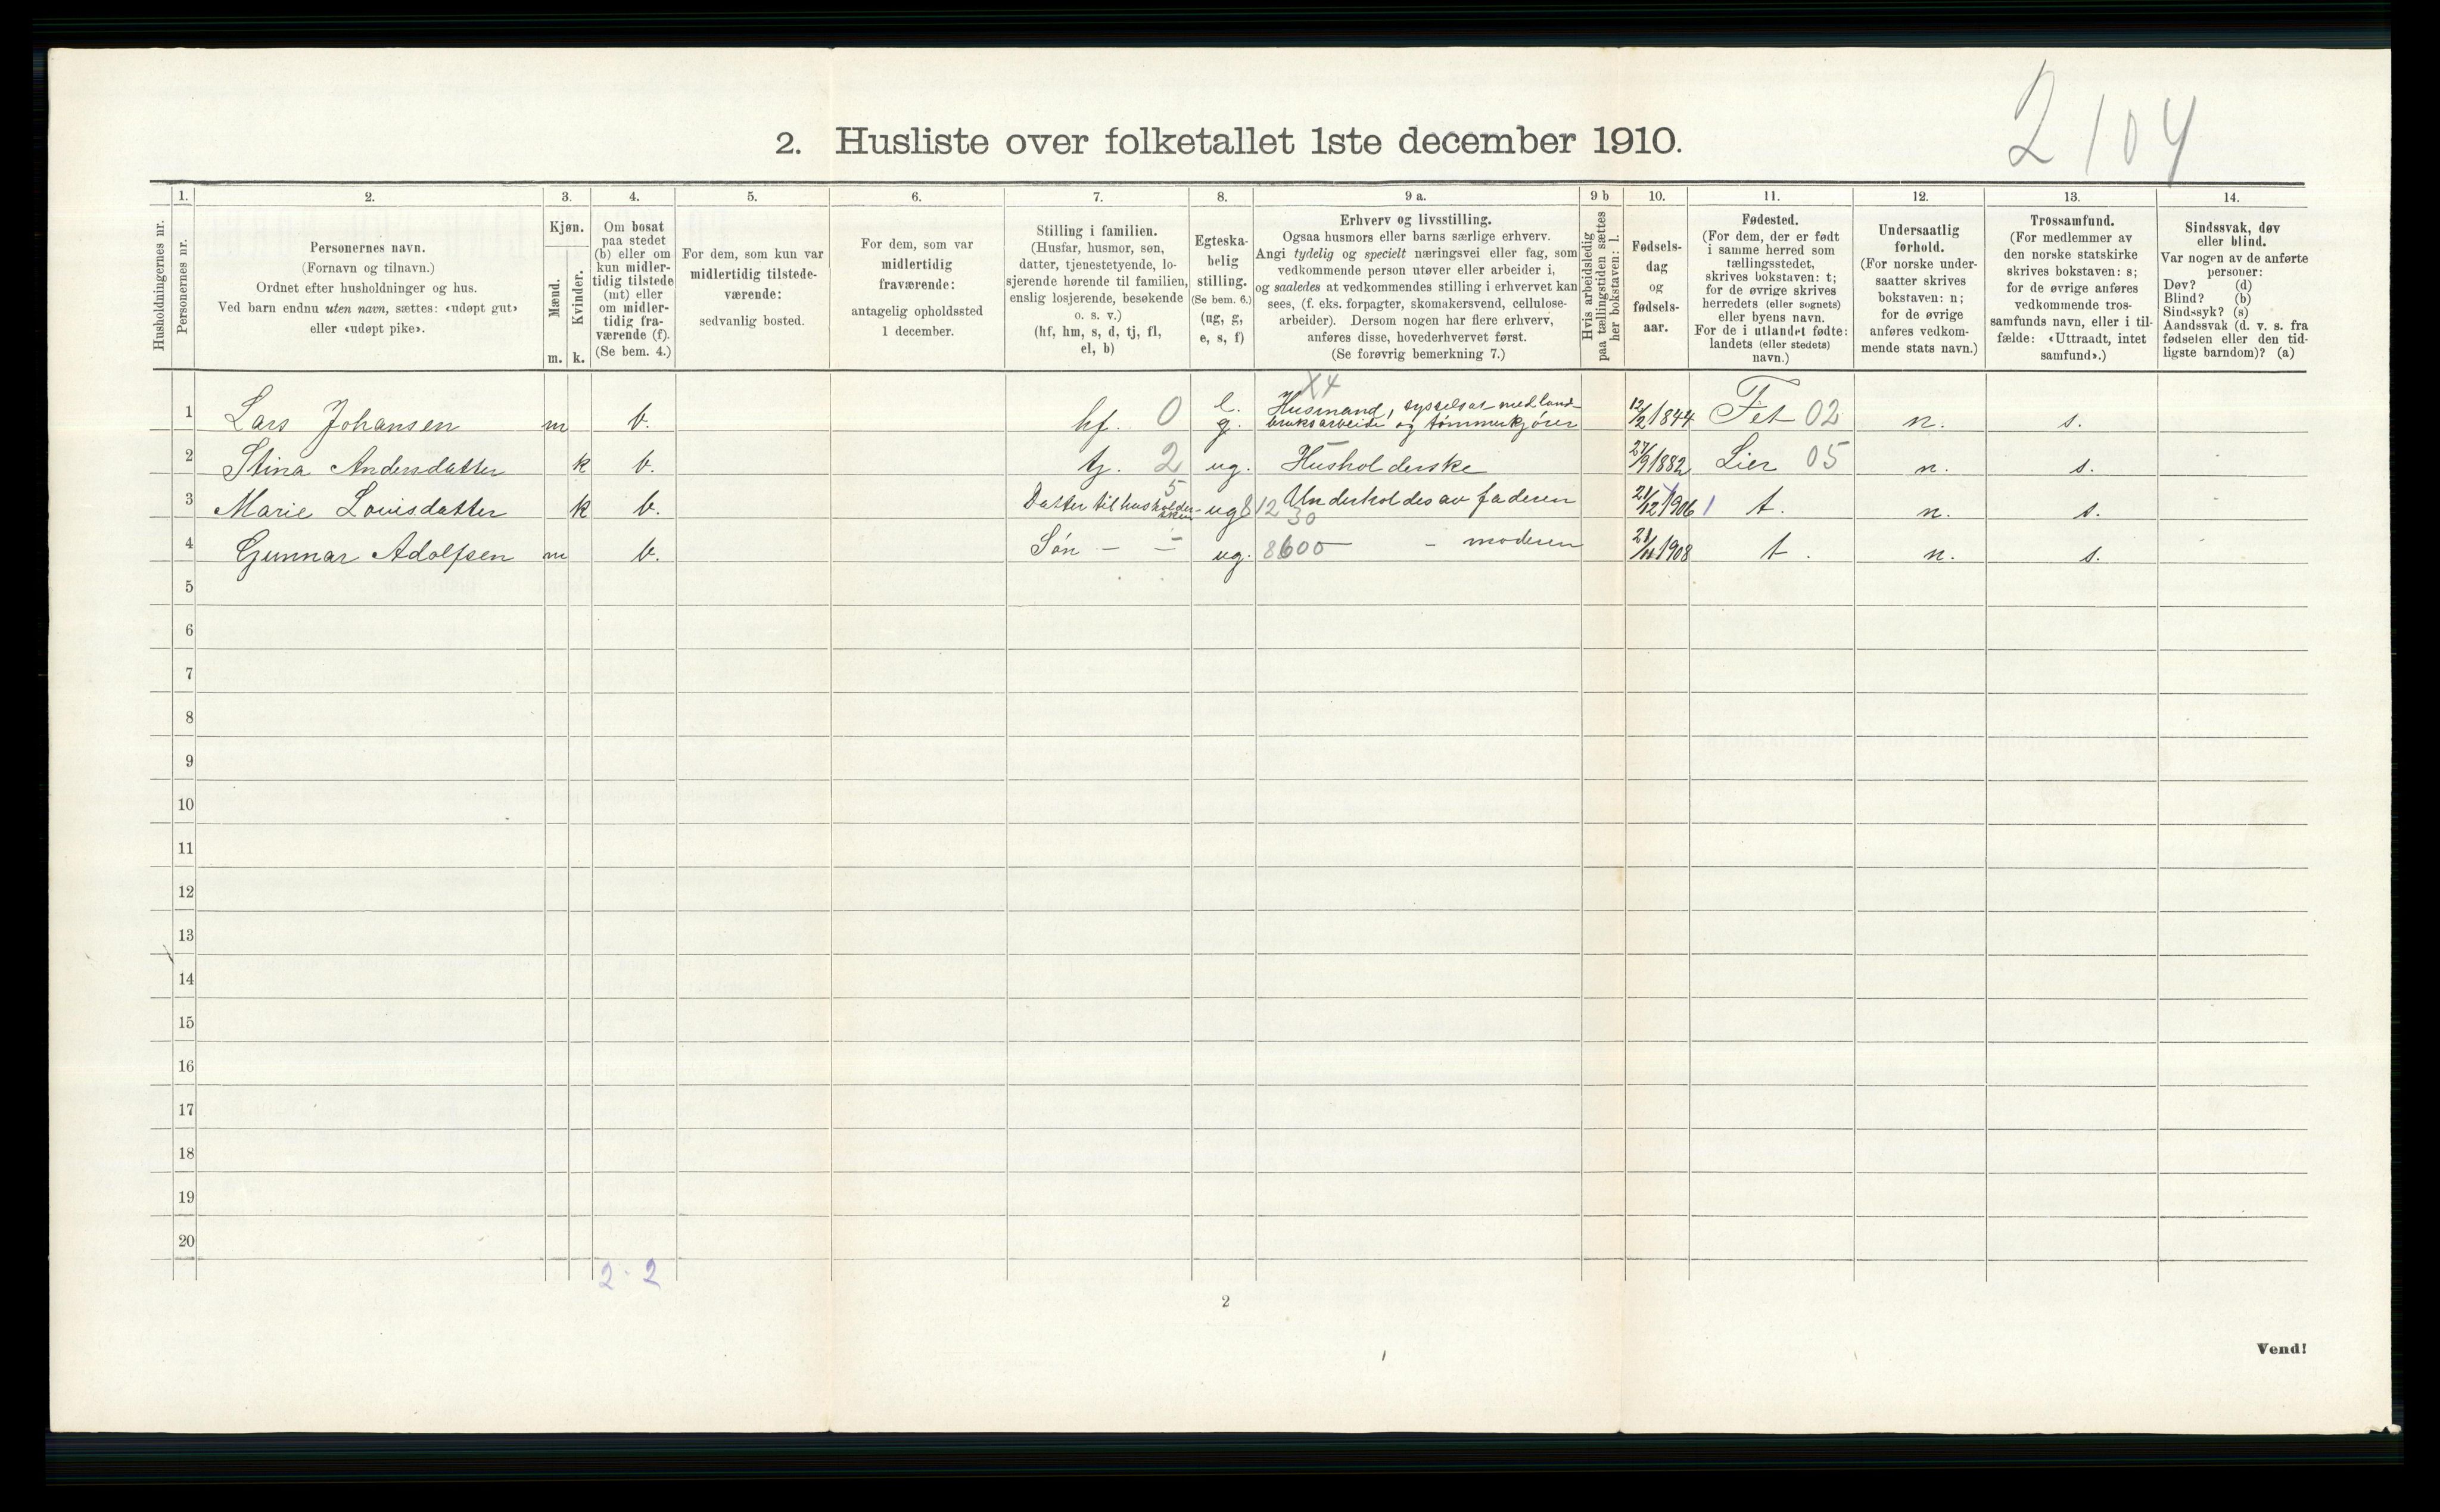 2104
2. Husliste over folketallet 1ste december 1910.
Husholdningernes nr.
1.
Personernes nr.
2.
Personernes navn.
(Fornavn og tilnavn.)
Ordnet efter husholdninger og hus.
Ved barn endnu uten navn, sættes: «udøpt gut»
eller «udøpt pike».
3.
Kjøn.
Mænd.
Kvinder.
m. k.
4.
Om bosat
paa stedet
(b) eller om
kun midler-
tidig tilstede
(mt) eller
om midler-
tidig fra-
værende (f).
(Se bem. 4.)
5.
For dem, som kun var
midlertidig tilstede-
værende:
sedvanlig bosted.
6.
For dem, som var
midlertidig
fraværende:
antagelig opholdssted
1 december.
7.
Stilling i familien.
(Husfar, husmor, søn,
datter, tjenestetyende, lo-
sjerende hørende til familien,
enslig losjerende, besøkende
o. s. v.)
(hf, hm, s, d, tj, fl,
el, b)
8.
Egteska-
belig
stilling.
(Se bem. 6.)
(ug, g,
e, s, f)
9 a.
Erhverv og livsstilling.
Ogsaa husmors eller barns særlige erhverv.
Angi tydelig og specielt næringsvei eller fag, som
vedkommende person utøver eller arbeider i,
og saaledes at vedkommendes stilling i erhvervet kan
sees, (f. eks. forpagter, skomakersvend, cellulose-
arbeider). Dersom nogen har flere erhverv,
anføres disse, hovederhvervet først.
(Se forøvrig bemerkning 7.)
9 b
Hvis arbeidsledig
paa tællingstiden sættes
her bokstaven: l.
10.
Fødsels-
dag
og
fødsels-
aar.
11.
Fødested.
(For dem, der er født
i samme herred som
tællingsstedet,
skrives bokstaven: t;
for de øvrige skrives
herredets (eller sognets)
eller byens navn.
For de i utlandet fødte:
landets (eller stedets)
navn.)
12.
Undersaatlig
forhold.
(For norske under-
saatter skrives
bokstaven: n;
for de øvrige
anføres vedkom-
mende stats navn.)
13.
Trossamfund.
(For medlemmer av
den norske statskirke
skrives bokstaven: s;
for de øvrige anføres
vedkommende tros-
samfunds navn, eller i til-
fælde: «Uttraadt, intet
samfund».)
14.
Sindssvak, døv
eller blind.
Var nogen av de anførte
personer:
Døv? (d)
Blind? (b)
Sindssyk? (s)
Aandssvak (d. v. s. fra
fødselen eller den tid-
ligste barndom)? (a)
X4
1 Lars Johansen m b. hf. 0 e. g. Husmand, sysselsat med land-
bruksarbeide og tømmerkjører 12/2 1844 Fet 02 n. s.
2 Stina Andersdatter k b. tj. 2 ug. Husholderske 27/9 1882 Lier 05 n. s.
3 Marie Louisdatter k b. Datter til husholder-
sken 5 ug 812 30 Underholdes av faderen 21/12 1906 1 t. n. s.
4 Gunnar Adolfsen m b. Søn — — ug. 8600 — - moderen 21/11 1908 t. n. s.
5
6
7
8
9
10
11
12
13
14
15
16
17
18
19
20
2 - 2
2
Vend!